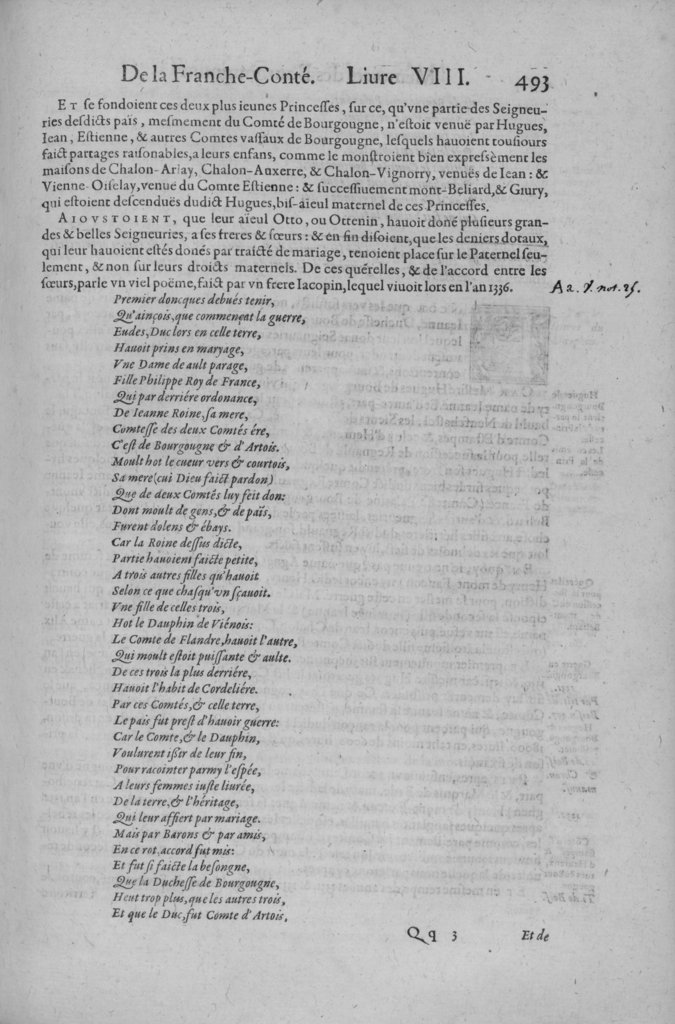 De la Franche-Conté. Liure VIII. 493
ET se fondoient ces deux plus ieunes Princesses, sur ce, qu'vne partie des Seigneu-
ries desdicts païs, mesmement du Comté de Bourgougne, n'estoit venuë par Hugues,
Iean, Estienne, & autres Comtes vassaux de Bourgougne, lesquels hauoient tousiours
faict partages raisonables, a leurs enfans, comme le monstroient bien expressèment les
maisons de Chalon-Arlay, Chalon-Auxerre, & Chalon-Vignorry, venuës de Iean: &
Vienne-Oiselay, venue du Comte Estienne: & successiuement mont-Beliard, & Giury,
qui estoient descenduës dudict Hugues, bis-aieul maternel de ces Princesses.
AIOVSTOIENT, que leur aïeul Otto, ou Ottenin, hauoit doné plusieurs gran-
des & belles Seigneuries, a ses freres & sœurs: & en fin disoient, que les deniers dotaux,
qui leur hauoient estés donés par traicté de mariage, tenoient place sur le Paternel seu-
lement, & non sur leurs droicts maternels. De ces quérelles, & de l'accord entre les
sœurs, parle vn viel poëme, faict par vn frere Iacopin, lequel viuoit lors en l'an 1336.
Premier doncques debués tenir,
Qu'ainçois, que commençat la guerre,
Eudes, Duc lors en celle terre,
Hauoit prins en maryage,
Vne Dame de ault parage,
Fille Philippe Roy de France,
Qui par derriére ordonance,
De Ieanne Roine, sa mere,
Comtesse des deux Comtés ére,
C'est de Bourgougne & d'Artois.
Moult hot le cueur vers & courtois,
Sa mere (cui Dieu faict pardon)
Que de deux Comtés luy feit don:
Dont moult de gens, & de païs,
Furent dolens & ébays.
Car la Roine dessus dicte,
Partie hauoient faicte petite,
A trois autres filles qu'hauoit
Selon ce que chasqu'vn sçauoit.
Vne fille de celles trois,
Hot le Dauphin de Viénois:
Le Comte de Flandre, hauoit l'autre,
Qui moult estoit puissante & aulte.
De ces trois la plus derriére,
Hauoit l'habit de Cordeliére.
Par ces Comtés, & celle terre,
Le païs fut prest d'hauoir guerre:
Car le Comte, & le Dauphin,
Voulurent issir de leur fin,
Pour racointer parmy l'espée,
A leurs femmes iuste liurée,
De la terre, & l'héritage,
Qui leur affiert par mariage.
Mais par Barons & par amis,
En ce rot, accord fut mis:
Et fut si faicte la besongne,
Que la Duchesse de Bourgougne,
Heut trop plus, que les autres trois,
Et que le Duc, fut Comte d'Artois,
Qq 3 Et de